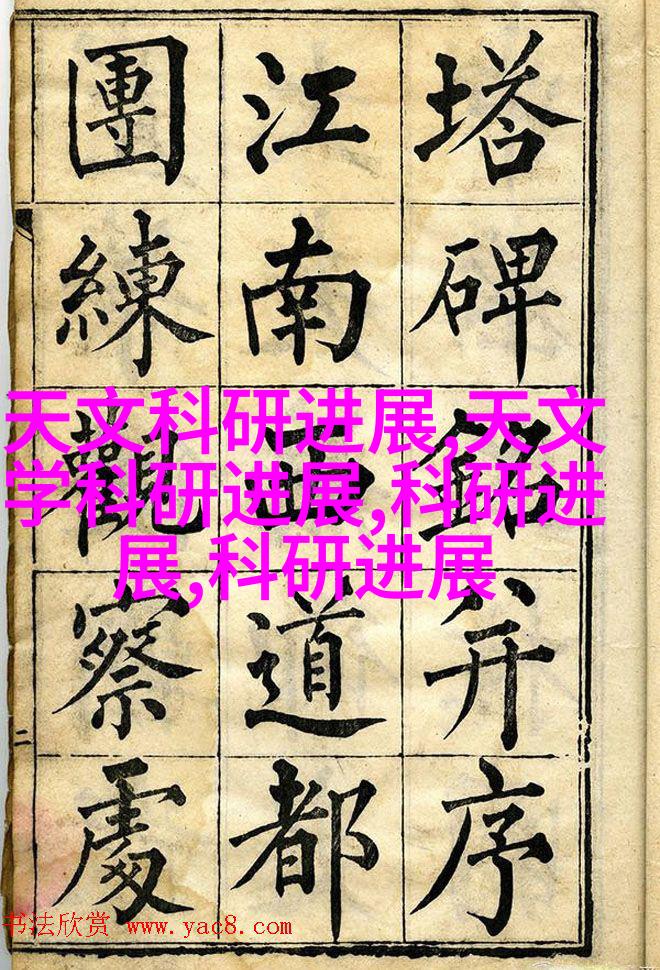 塔碑銘并序
江南西道都
團練觀察處
二
天文科研进展,天文
学科研进展,科研进
展,科研进展
书法欣赏 www.yac8.com